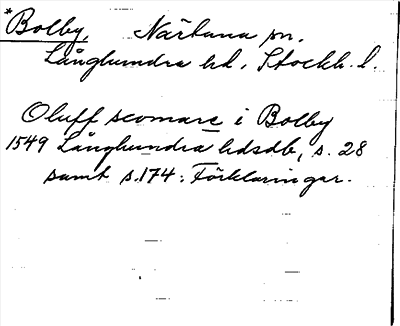 *Bolby, Närtuna sn.
Långhundra hd, Stockh. l.
Oluff scomare i Bolby
1549 Långhundra hdsdb, s. 28
samt s. 174: Förklaringar.